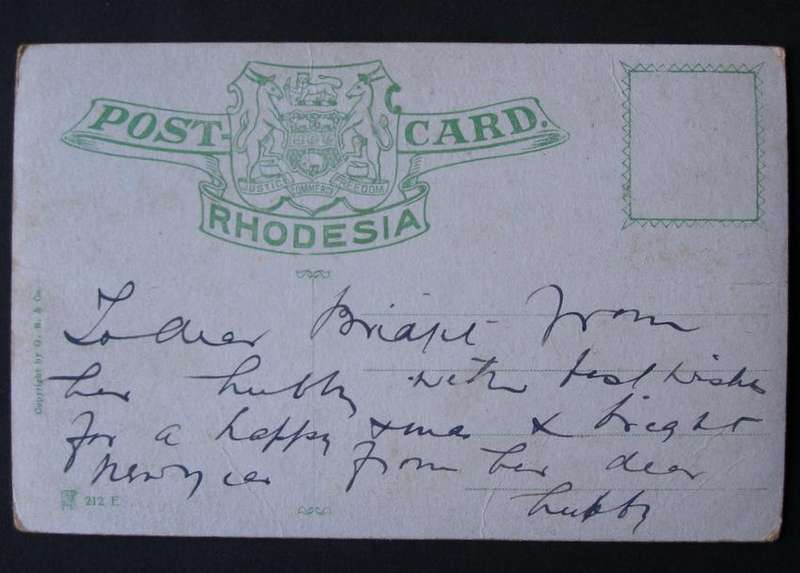 POST-CARD.
JUSTICE COMMERCE FREEDOM
RHODESIA
To dear Bridget from
her hubby with best wishes
for a happy xmas & bright
new year from her dear
hubby
Copyright by G. B. & Co.
212 E